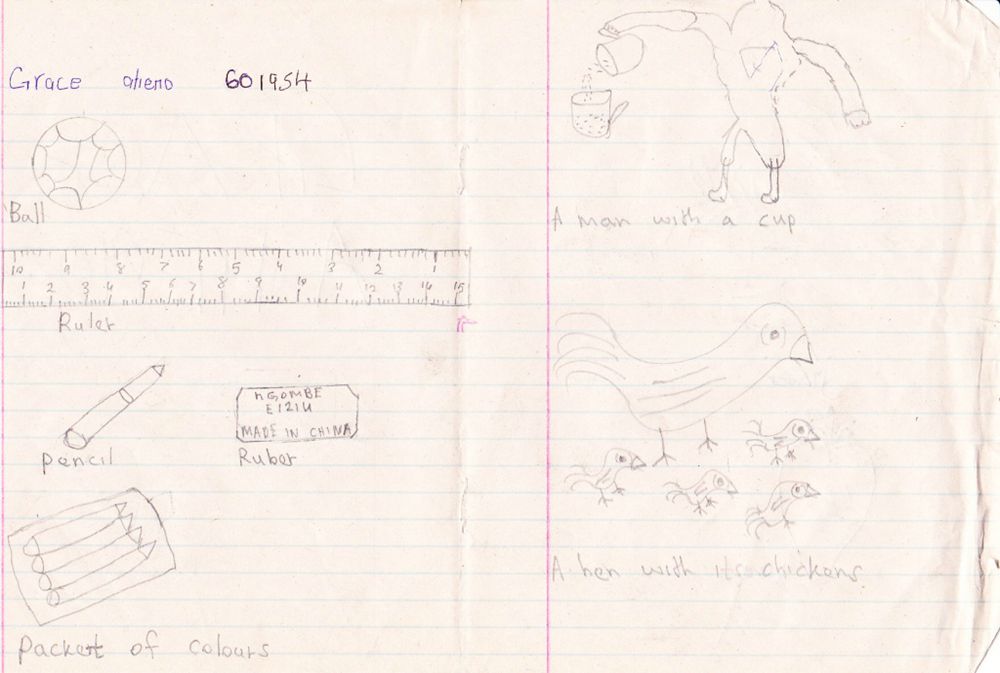 Grace atieno 601954
Ball
10 9 8 7 6 5 4 3 2 1
1 2 3 4 5 6 7 8 9 10 11 12 13 14 15
Ruler
NGOMBE
E1214
MADE IN CHINA
pencil
Ruber
Packet of colours
A man with a cup
A hen with its chickens